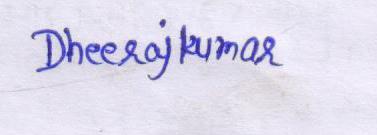 Dheeraj kumar